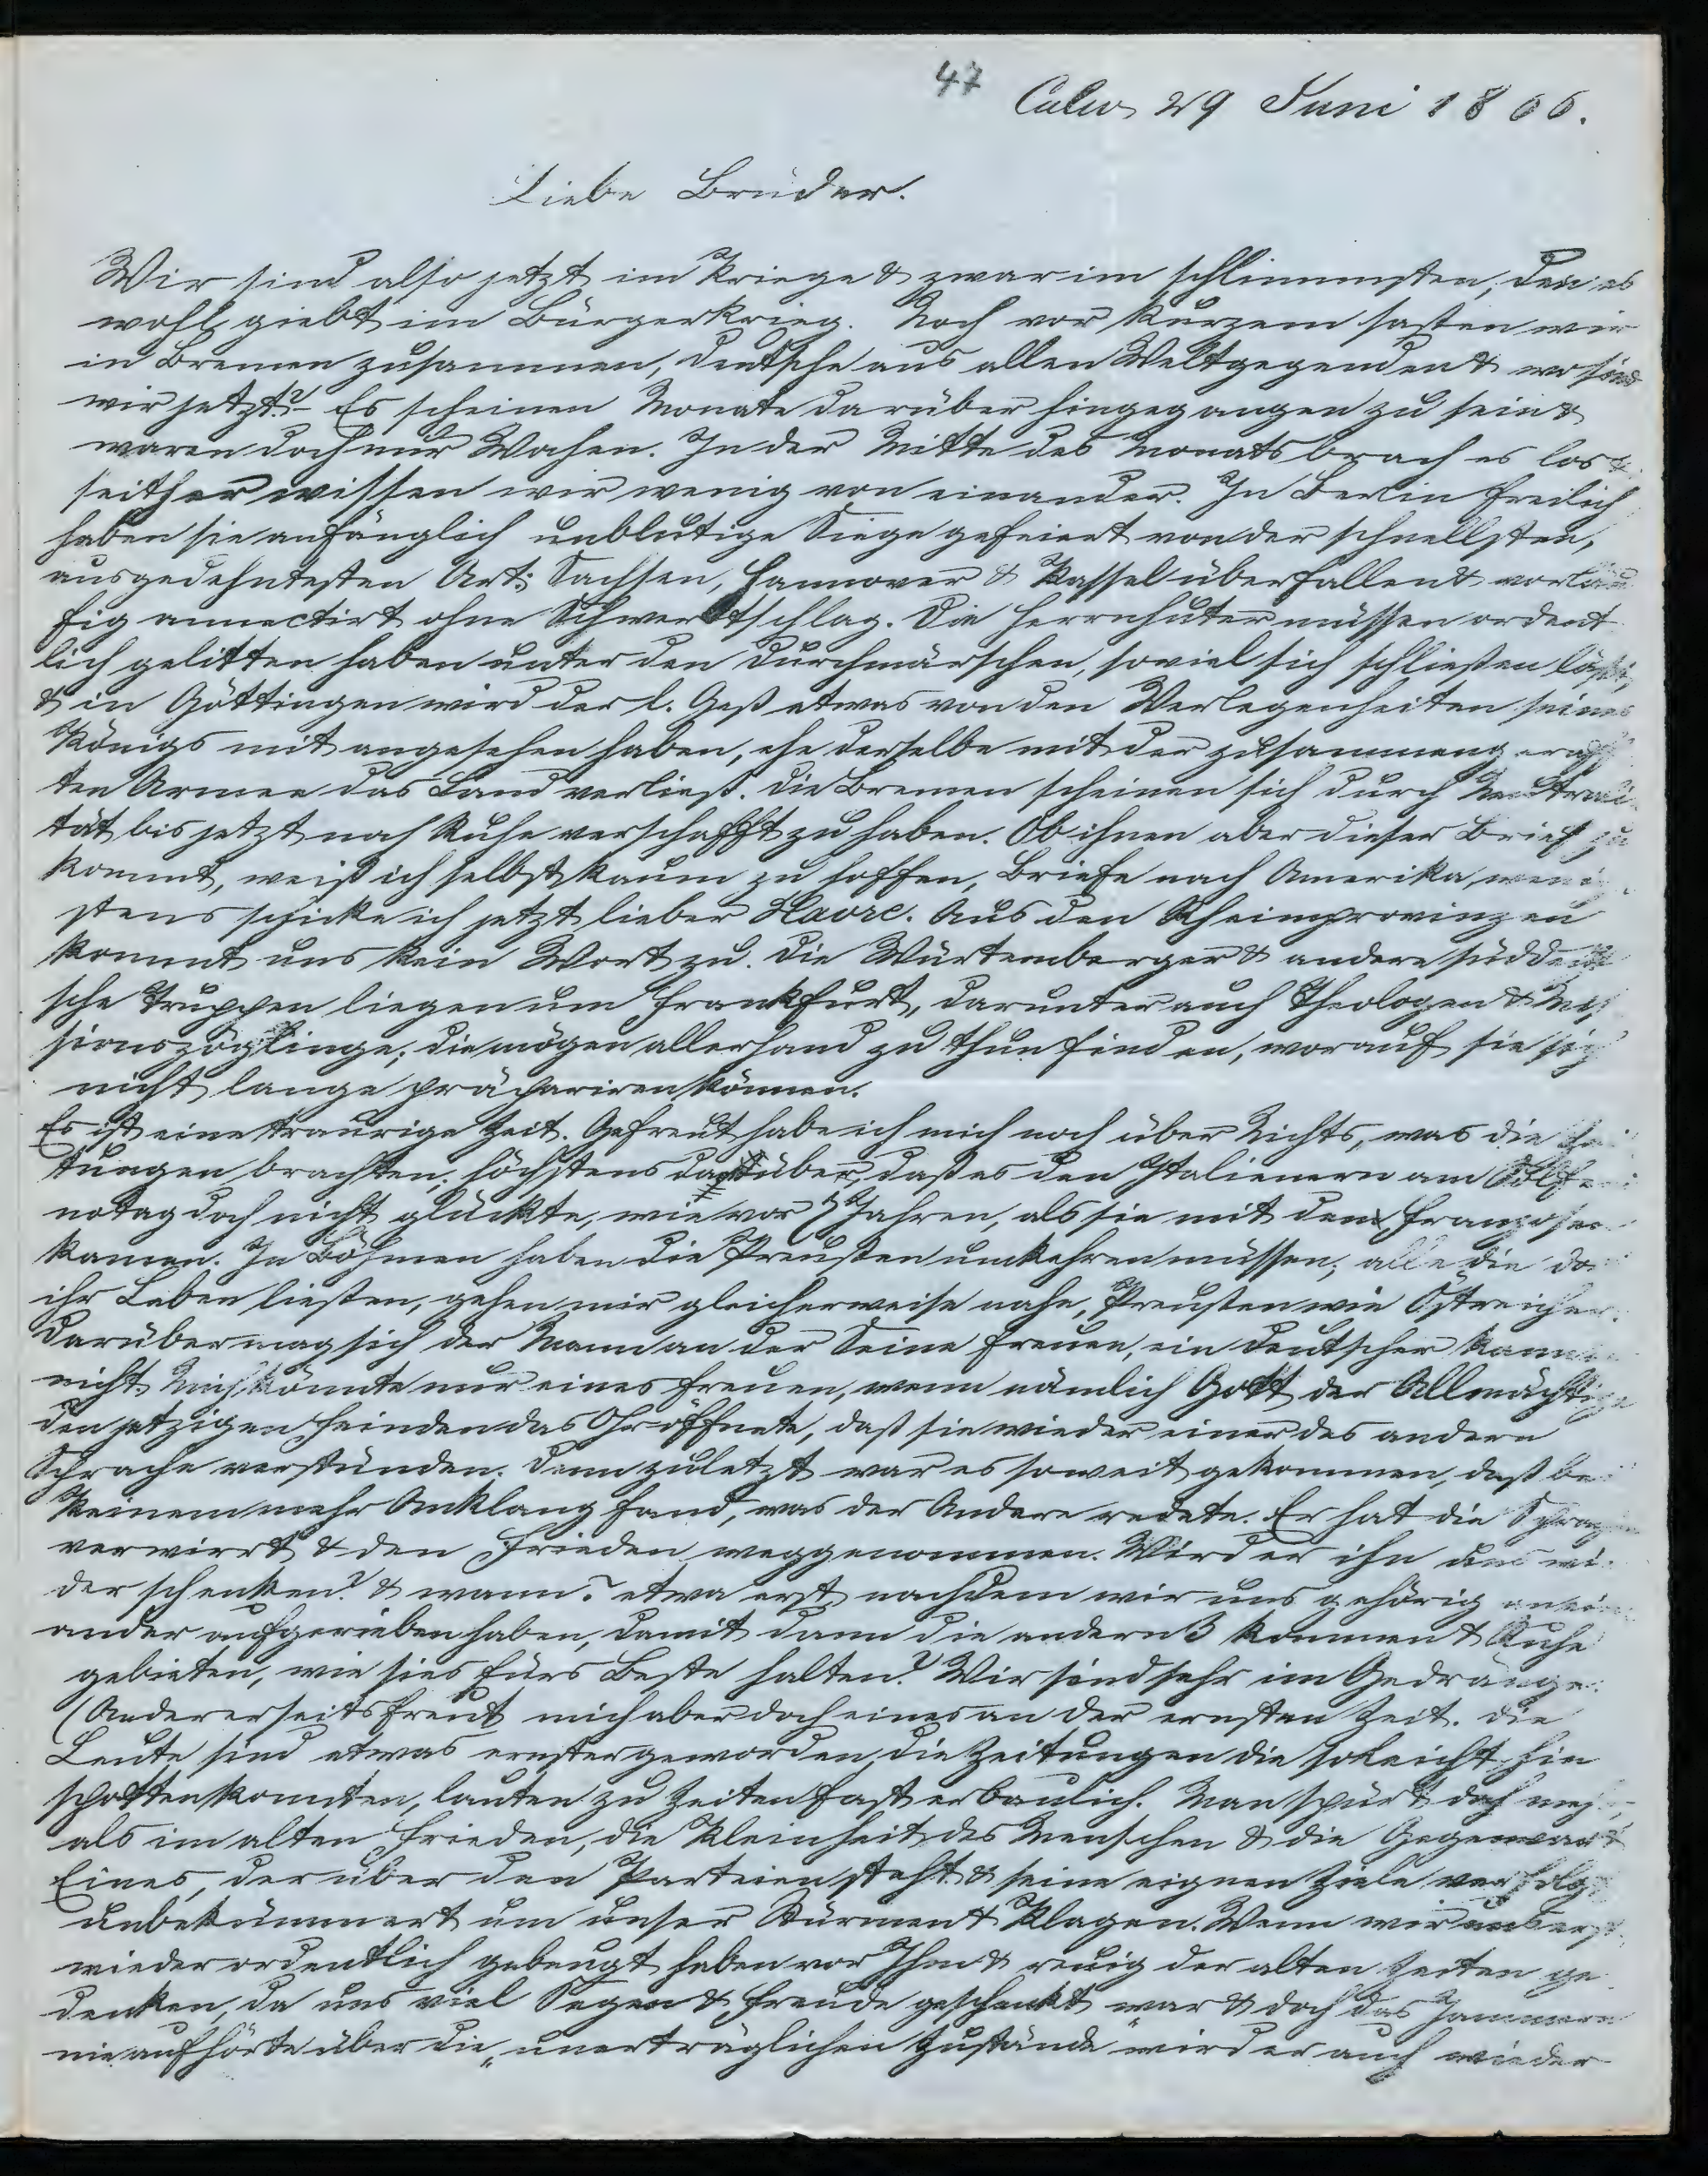 47 Calw 29 Juni 1866.
Liebe Brüder.
Wir sind also jetzt im Kriege & zwar im schlimmsten, den es
wohl giebt im Bürgerkrieg. Noch vor kurzem saßen wir
in Bremen zusammen, Deutsche aus allen Weltgegenden & wo sind
wir jetzt? – Es scheinen Monate darüber hingegangen zu sein &
waren doch nur Wochen. In der Mitte des Monats brach es los &
seither wissen wir wenig von einander. In Berlin freilich
haben sie anfänglich unblutige Siege gefeiert von der schnellsten,
ausgedehntesten Art: Sachsen, Hannover & Kassel überfallen & vorläu
fig annectirt ohne Schwertschlag. Die Herrnhuter müssen ordent
lich gelitten haben unter den Durchmärschen, soviel sich schließen läßt,
& in Göttingen wird der l. Geß etwas von den Verlegenheiten seines
Königs mit angesehen haben, ehe derselbe mit der zusammengeraff
ten Armee das Land verließ. Die Bremen scheinen sich durch Neutrali
tät bis jetzt noch Ruhe verschafft zu haben. Ob ihnen aber dieser Brief zu
kommt, weiß ich selbst kaum zu hoffen, Briefe nach Amerika, wenig
stens schicke ich jetzt lieber Havre. Aus den Rheinprovinzen
kommt uns kein Wort zu. Die Würtemberger & andere süddeut
sche Truppen liegen um Frankfurt, darunter auch Theologen & Mis
sionszöglinge; die mögen allerhand zu thun finden, worauf sie sich
nicht lange präpariren können.
Es ist eine traurige Zeit. Gefreut habe ich mich noch über Nichts, was die Zei
tungen brachten; höchstens darüber, daß es den Italienern am Solferi
notag doch nicht glückte, wie vor 7 Jahren, als sie mit den Franzosen
kamen. In Böhmen haben die Preußen umkehren müssen; alle die da
ihr Leben ließen, gehen mir gleicherweise nahe, Preußen wie Östreicher.
Darüber mag sich der Mann an der Seine freuen, ein Deutscher kann
nicht. Mich könnte nur eines freuen, wenn nämlich Gott der Allmächtige
den jetzigen Feinden das Ohr öffnete, daß sie wieder einer des andern
Sprache verstünden. Denn zuletzt war es soweit gekommen, daß bei
keinem mehr Anklang fand, was der Andere redete. Er hat die Sprachen
verwirrt & den Frieden weggenommen. Wird er ihn uns wi
der schenken? & wann? etwa erst, nachdem wir uns gehörig anein
ander aufgerieben haben, damit dann die andern 3 kommen & Ruhe
gebieten, wie sies fürs Beste halten? Wir sind sehr im Gedränge.
Andererseits freut mich aber doch eines an der ernsten Zeit. Die
Leute sind etwas ernster geworden, die Zeitungen die so leicht hin
spotten konnten, lauten zu Zeiten fast erbaulich. Man spürt doch mehr,
als im alten Frieden, die Kleinheit des Menschen & die Gegenwart
Eines, der über den Parteien steht & seine eignen Ziele verfolgt
unbekümmert um unser Stürmen & Klagen. Wenn wir uns erst
wieder ordentlich gebeugt haben vor Ihm & reuig der alten Zeiten ge
denken, da uns viel Segen & Freude geschenkt war & doch das Jammern
nie aufhörte über die „unerträglichen Zustände" wird er auch wieder